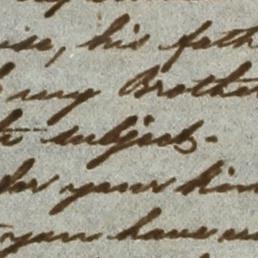 his fath
my Brothe
subject.
for your kin
you have